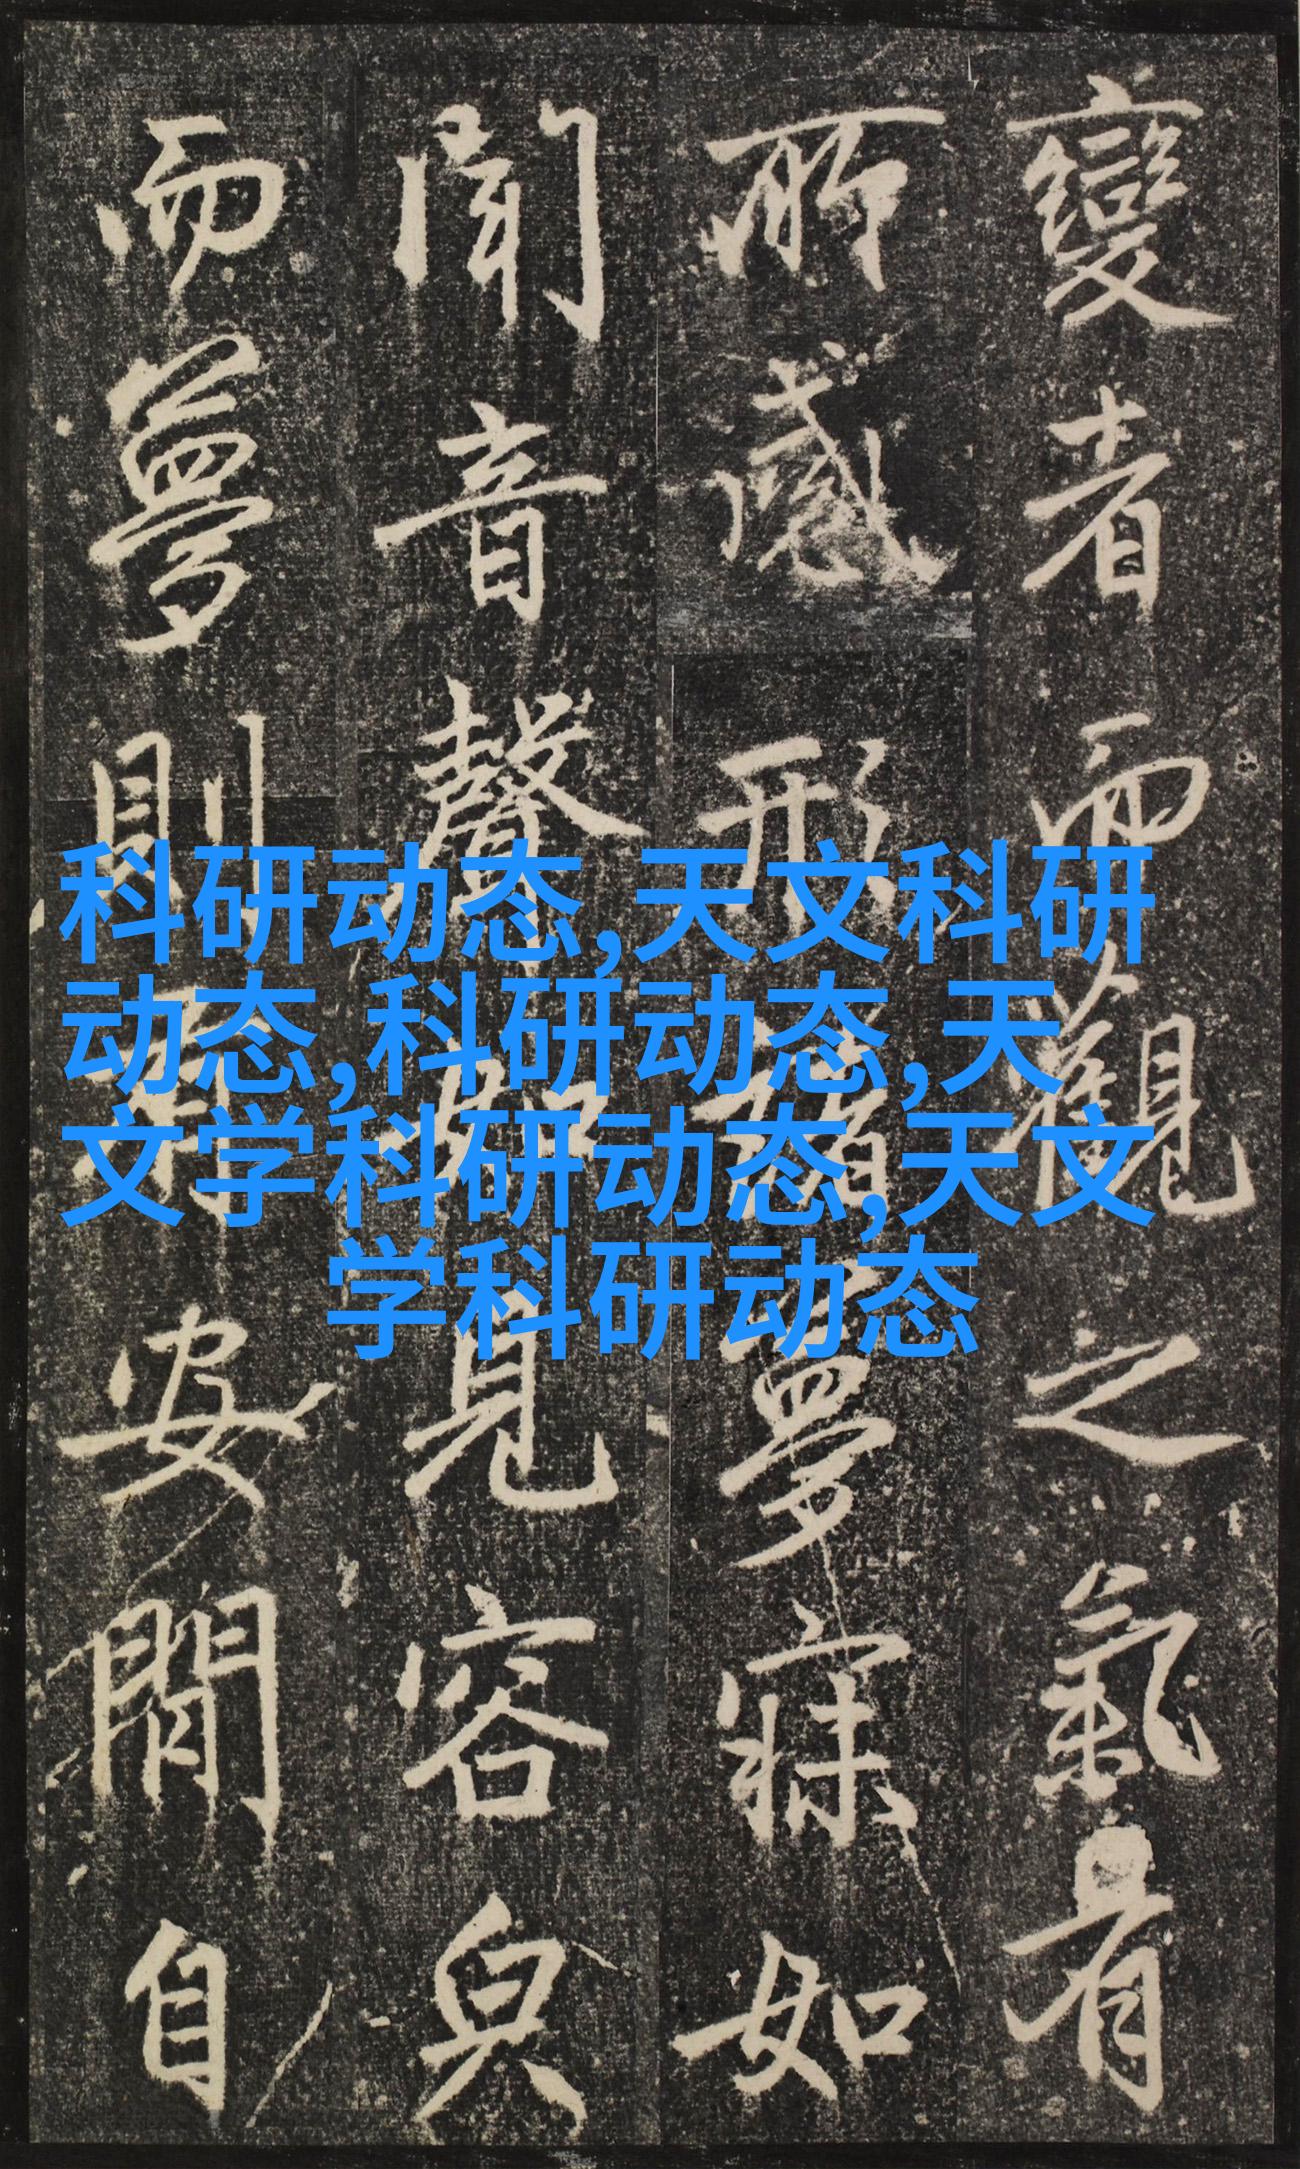 變者而觀之氣有
所感形諸夢寐如
聞音聲如見容皃
而夢則安閒自
科研动态,天文科研
动态,科研动态,天
文学科研动态,天文
学科研动态